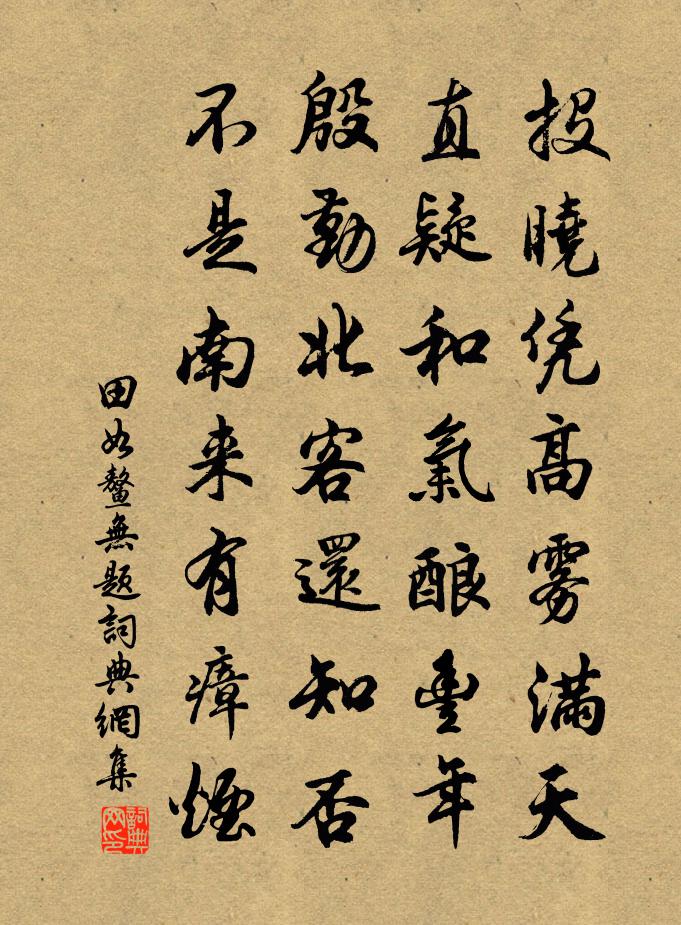 投曉凭高霧滿天
直疑和氣酿豊年
殷勤北客還知否
不是南来有瘴煙
田如鳌無題詞典網集
詞典網印